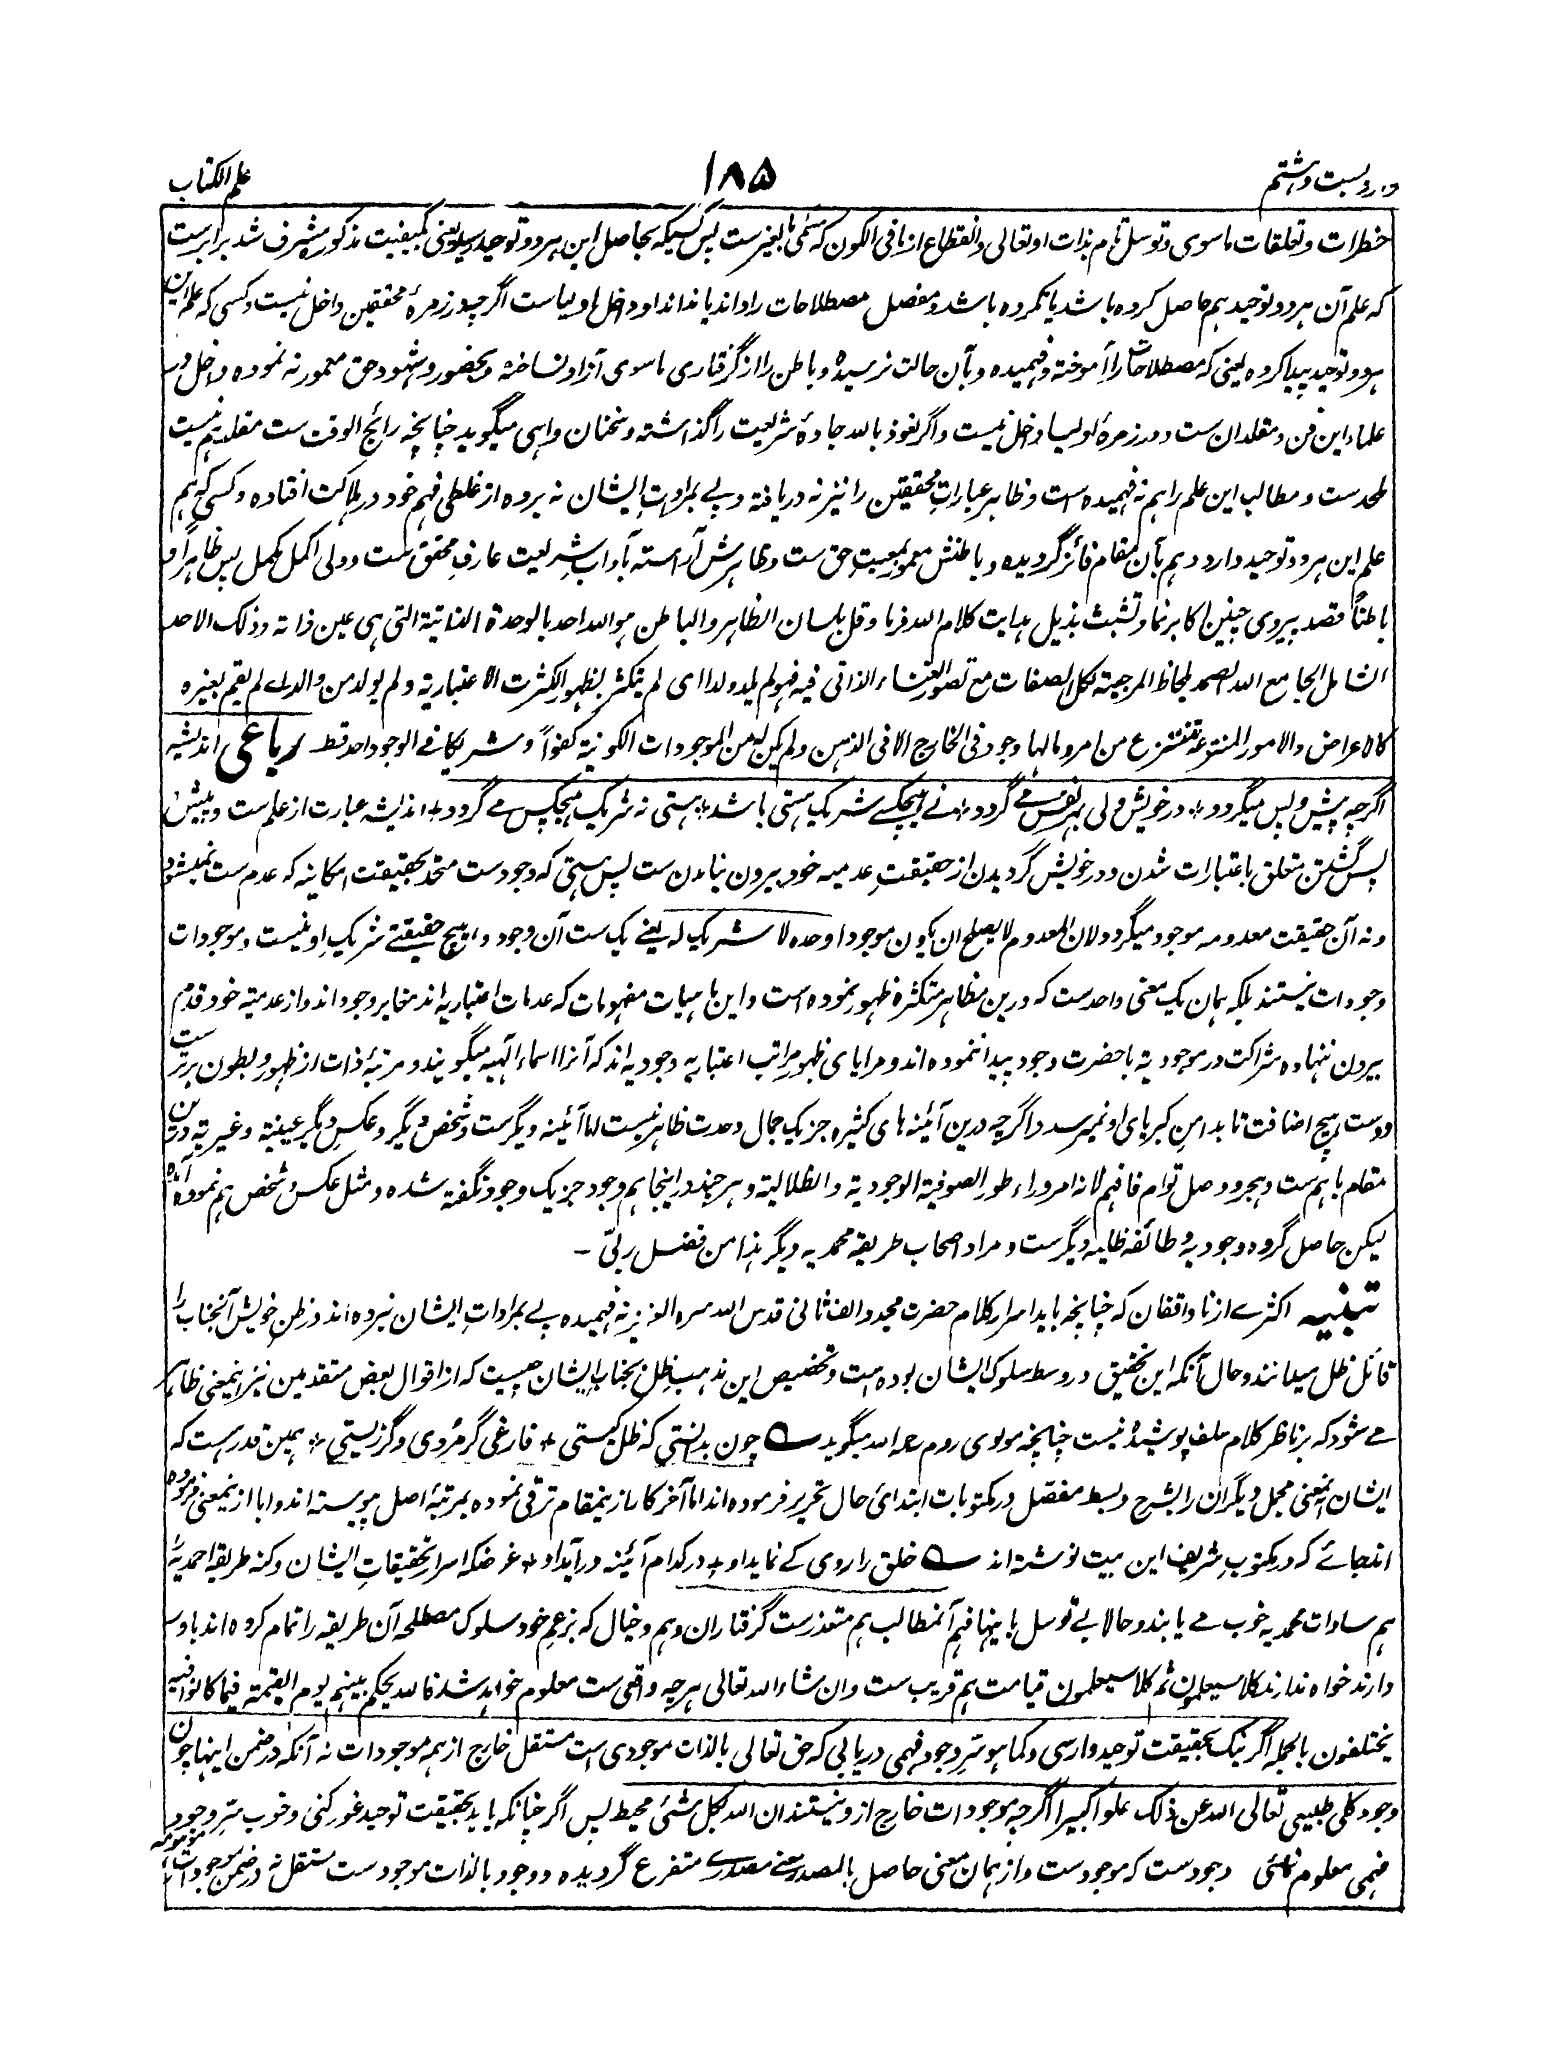 وارد بست و هشتم
۱۸۵
علم الکتاب
خطرات و تعلقات ماسوی و توسل تام بذات او تعالی و انقطاع از ما فی الکون که مسمی بالغیرست پس کسیکه بحاصل این هر دو توحید یعنی بکیفیت مذکور مشرف شد برابرست
که علم آن هر دو توحید هم حاصل کرده باشد یا نکرده باشد و مفصل مصطلاحات را داند یا نداند او داخل اولیاست اگرچه در زمرهٔ محققین داخل نیست و کسی که علم این
هر دو توحید پیدا کرده یعنی که مصطلاحات را آموخته و فهمیده و بآن حالت نرسیده و باطن را از گرفتاری ماسوی آزاد نساخته و بحضور و شهود حق معمور نه نموده داخل در
علماء این فن و مقلدان ست و در زمرهٔ اولیا داخل نیست و اگر نعوذ بالله جادهٔ شریعت را گذاشته و سخنان واهی میگوید چنانچه رائج الوقت ست مقلد هم نیست
ملحدست و مطالب این علم را هم نه فهمیده است و ظاهر عبارات محققین را نیز نه دریافته و پے بمرادات ایشان نه برده از غلطی فهم خود در هلاکت افتاده و کسی که هم
علم این هر دو توحید دارد و هم بآن مقام فائز گردیده و باطنش معمور بمعیت حق ست و ظاهرش آراسته بآداب شریعت عارف محقق ست و ولی اکمل مکمل پس ظاهراً و
باطناً قصد پیروی چنین اکابر نما و تشبث بذیل هدایت کلام الله فرما و قل بلسان الظاهر و الباطن هو الله احد بالوحدة الذاتیة التی هی عین ذاته و ذلک الاحد
الشامل الجامع الله الصمد بلحاظ المرجعیة لکل الصفات مع تصور الغناء الذاتی فیه فهو لم یلد ولدا ای لم یتکثر بظهور الکثرت الاعتباریة و لم یولد من والد ای لم یقم بغیره
کالاعراض و الامور المنتزعة تنتزع من امر و مالها وجود فی الخارج الا فی الذهن و لم یکن له من الموجودات الکونیة کفواً و شریکا فے الوجود احد قط رباعی اندیشه
اگرچه پیش و پس میگردد ٭ در خویش ولی بهر نفس مے گردد ٭ نے هیچکسے شریک هستی باشد ٭ هستی نه شریک هیچکس مے گردد ٭ اندیشه عبارت از علم ست و پیش
پس گشتن متعلق باعتبارات شدن و در خویش گردیدن از حقیقت عدمیه خود بیرون نیامدن ست پس هستی که وجودست متحد بحقیقت امکانیه که عدم ست نمیشود
و نه آن حقیقت معدومه موجود میگردد لان المعدوم لا یصلح ان یکون موجودا وحده لا شریک له یعنے یک ست آن وجود و هیچ حقیقتے شریک او نیست و موجودات
وجودات نیستند بلکه همان یک معنی واحدست که درین مظاهر متکثره ظهور نموده است و این ماهیات مفهومات که عدمات اعتباریه اند مغایر وجود اند و از عدمیته خود قدم
بیرون ننهاده شراکت در موجودیة با حضرت وجود پیدا ننموده اند و مرایای ظهور مراتب اعتباریه وجودیه اند که آنرا اسماء الهیه میگویند و مرتبهٔ ذات از ظهور و بطون برترست
و دست هیچ اضافت تا بدامن کبریای او نمیرسد و اگرچه درین آئینه های کثیره جز یک جمال وحدت ظاهر نیست اما آئینه دیگرست و شخص دیگر و عکس دیگر عینیة و غیریة درین
مقام باهم ست و هجر و وصل توام فافهم لانه امر وراء طور الصوفیة الوجودیة و الظلالیة و هر چند در اینجا هم وجود جز یک وجود نگفته شده و مثل عکس و شخص هم نموده آمده
لیکن حاصل گروه وجودیه و طائفه ظلیه دیگرست و مراد اصحاب طریقه محمدیه دیگر هذا من فضل ربّی ۔
تنبیه اکثرے از ناواقفان که چنانچه باید اسرار کلام حضرت مجدد الف ثانی قدس الله سره العزیز نه فهمیده پے بمرادات ایشان نبرده اند در ظن خویش آنجناب را
قائل ظل میدانند و حال آنکه این تحقیق در وسط سلوک ایشان بوده است و تخصیص این مذهب ظل بجناب ایشان چیست که از اقوال بعض متقدمین نیز نمعنی ظاهر
مے شود که بر ناظر کلام سلف پوشیده نیست چنانچه مولوی روم رحمه الله میگوید ؎ چون بدانستی که ظل کیستی ٭ فارغی گر مُردی و گر زیستی ٭ همین قدرست که
ایشان نمعنی مجمل دیگران را بشرح و بسط مفصل در مکتوبات ابتدائ حال تحریر فرموده اند اما آخر کار ازینمقام ترقی نموده بمرتبهٔ اصل پیوسته اند و ابا ازینمعنی فرموده
اند جائے که در مکتوب شریف این بیت نوشته اند ؎ خلق را روی کے نماید او ٭ در کدام آئینه در آید او ٭ غرضکه اسرار تحقیقات ایشان و کنه طریقه احمدیه را
هم سادات محمدیه خوب مے یابند و حالا بے توسل باینها فهم آنمطالب هم متعذرست گرفتاران وهم و خیال که بزعم خود سلوک مصطلحه آن طریقه را تمام کرده اند باور
دارند خواه ندارند کلا سیعلمون ثم کلا سیعلمون قیامت هم قریب ست و ان شاء الله تعالی هرچه واقعی ست معلوم خواهد شد فالله یحکم بینهم یوم القیمة فیما کانوا فیه
یختلفون بالجمله اگر نیک بحقیقت توحید وارسی و کما هو سر وجود فهمی دریابی که حق تعالی بالذات موجودی است مستقل خارج از همه موجودات نه آنکه در ضمن اینها چون
وجود کلی طبیعی تعالی الله عن ذلک علوا کبیرا اگرچه موجودات خارج ازو نیستند ان الله بکل شئی محیط پس اگر چنانکه باید بحقیقت توحید غور کنی و خوب سر وجود
فهمی معلوم نمائی وجودست که موجودست و از همان معنی حاصل بالمصدر معنے مصدرے متفرع گردیده و وجود بالذات موجودست مستقل نه در ضمن موجودات